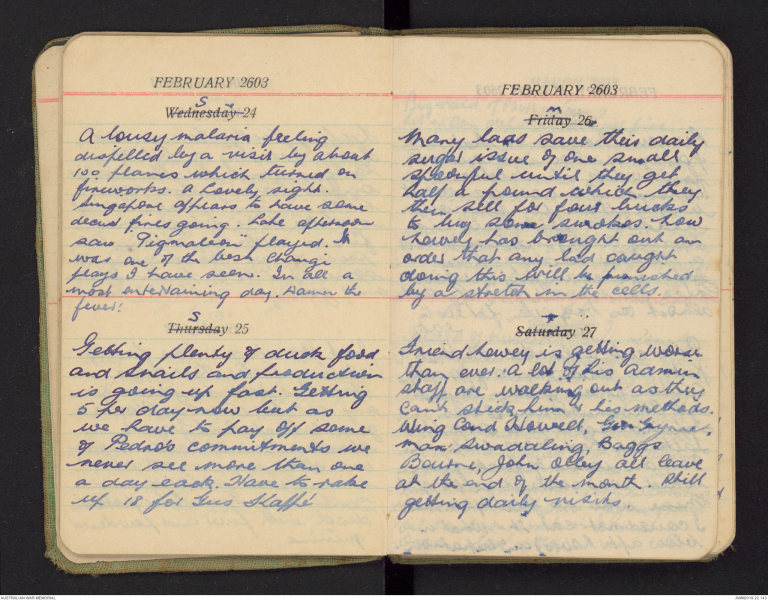 FEBRUARY 2603
S
Wednesday 24
A lousy malaria feeling
dispelled by a visit by about
100 planes which turned on
fireworks. A lovely sight.
Singapore appears to have some
decent fires going. Late afternoon
saw "Pigmalion" played. It
was one of the best Changi
plays I have seen. In all a
most entertaining day. Damn the
fever!
S
Thursday 25
Getting plenty of duck food
and snails and production
is going up fast. Getting
5 per day now but as
we have to pay off some
of Pedro's commitments we
never see more than one
a day each. Have to raise
up 18 for Gus
FEBRUARY 2603
M
Friday 26
Many lads save their daily
sugar issue of one small
spoonful until they get
half a pound which they
then sell for four bucks
to buy some smokes. Now
hewey has brought out an
order that any lad caught
doing this will be punished
by a stretch in the cells.
T
Saturday 27
Friend hewey is getting worse
than ever. A lot of his admin
staff are walking out as they
can't stick him & his methods.
Wing Comd Howell,
man Swadling, Baggs
Bourne, John Olley all leave
at the end of the month. Still
getting daily visits.
AUSTRALIAN WAR MEMORIAL